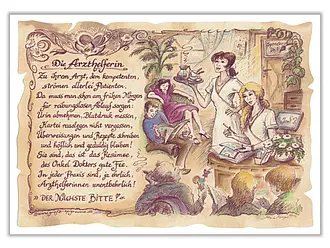 Die Arzthelferin
Zu ihrem Arzt, dem kompetenten,
strömen allerlei Patienten.
Da muss man schon am frühen Morgen
für reibungslosen Ablauf sorgen:
Urin abnehmen, Blutdruck messen,
Kartei auslegen nicht vergessen,
Überweisungen und Rezepte schreiben
und höflich und geduldig bleiben!
Sie sind, das ist das Resümee,
des Onkel Doktors gute Fee.
In jeder Praxis sind, ja ehrlich,
Arzthelferinnen unentbehrlich!
"DER NÄCHSTE BITTE!"